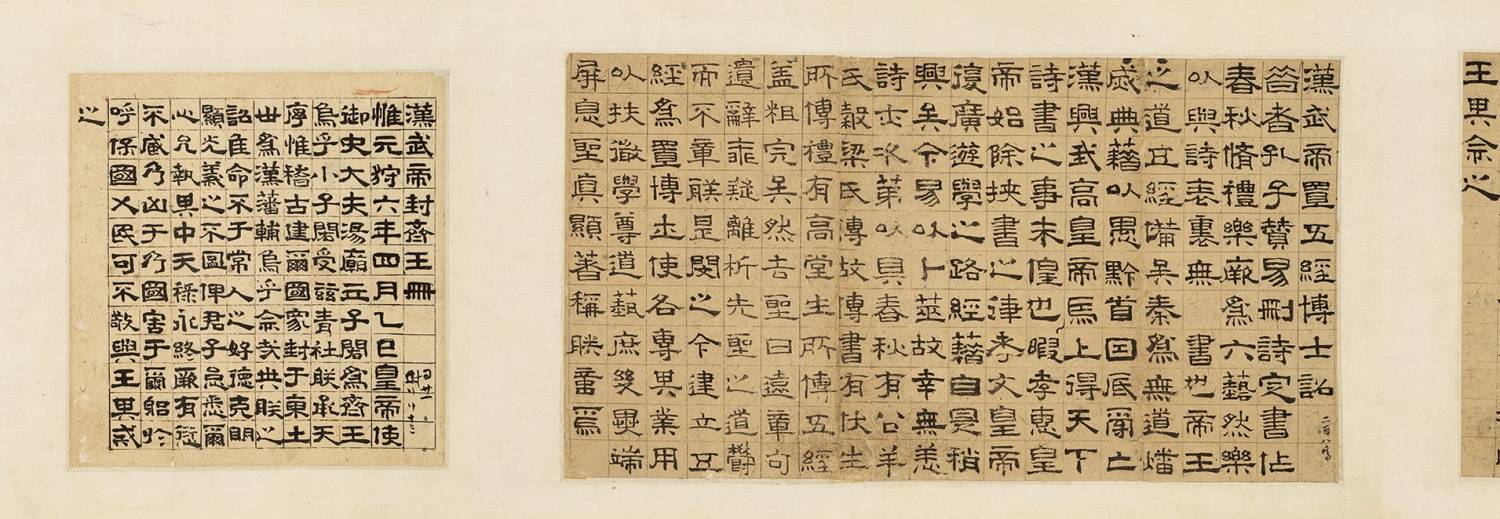 王其念之
漢武帝置五經博士詔
昔者孔子贊易刪詩定書作
春秋脩禮樂厥為六藝然樂
以與詩表裏無書也帝王
之道五經備矣秦為無道燔
滅典藉以愚黔首因底喪亡
漢興我高皇帝馬上得天下
詩書之事未遑也暇孝惠皇
帝始除挾書之律孝文皇帝
復廣遊學之路經藉自是稍
興矣今易以卜筮故幸無恙
詩亡次第以具春秋有公羊
氏穀梁氏傳故傳書有伏生
所傳禮有高堂生所傳五經
蓋粗完矣然去聖日遠章句
遺辭乖疑離析先聖之道鬱
而不章朕是閔之今建立五
經為置博士使各專其業用
以扶微學尊道藝庶幾異端
屏息聖真顯著稱朕意焉
漢武帝封齊王冊
惟元狩六年四月乙巳皇帝使
御史大夫湯廟立子閎為齊王
烏乎小子閎受茲青社朕承天
序惟稽古建爾國家封于東土
世為漢藩輔烏乎念哉共朕之
詔惟命不于常人之好德克明
顯光義之不圖俾君子怠悉爾
心允執其中天祿永終厥有愆
不臧乃凶于乃國害于爾躬於
呼保國乂民可不敬與王其戒
之